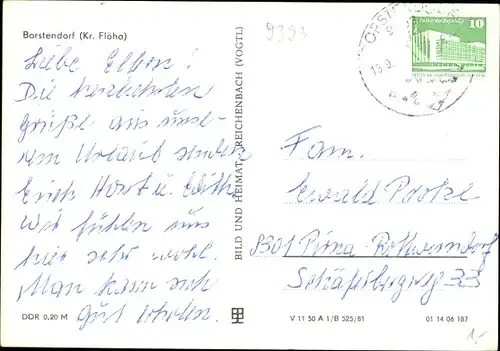 Borstendorf (Kr. Flöha)
Liebe Eltern!
Die herzlichsten
Grüße aus unse-
rem Urlaub senden
Erich Horst u. Edith
Wir fühlen uns
hier sehr wohl.
Man kann sich
gut erholen.
DDR 0,20 M
BILD UND HEIMAT REICHENBACH (VOGTL)
9393
10
Fam.
Ewald
8301 Pirna-Rottwerndorf
33
V 11 50 A 1/B 525/81 01 14 06 187
1,-